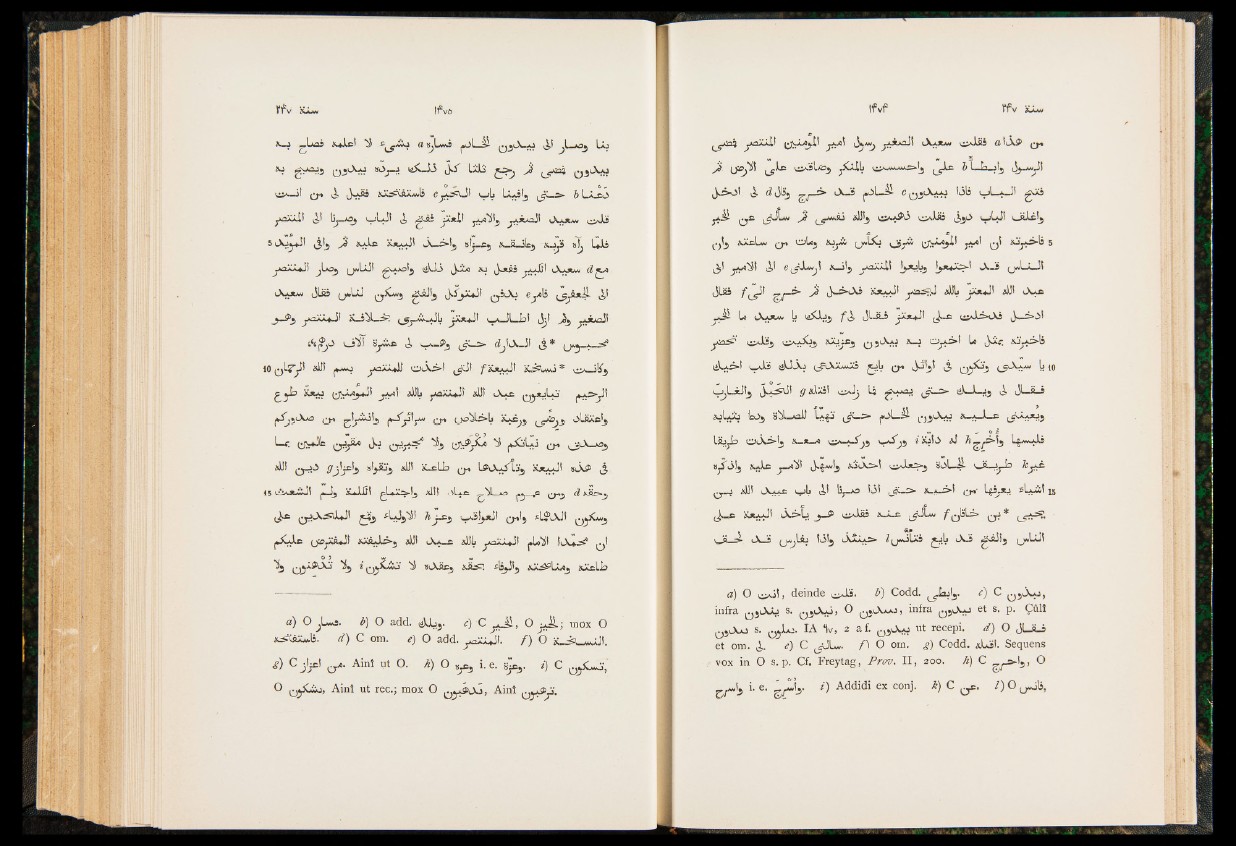 سنة ٢٤٧ ١٤٧٤
من هذا a فقلت سعيد الصغير رسول امير المؤمنين المنتصر فمضى
الرسول وابطأ b علىّ واحسست بالمنكر وضاقت علىّ الارض ثم
فتح الباب فاذا ببيدون c الخادم قد خرج وقال d لى ادخل
واغلق الباب دونى فقلت ذهبت والله نفسى ثم سألنى عن الخبر
5 فاخبرته ان امير المؤمنين شرق بكأس شربه ومات من ساعته وان
الناس قد اجتمعوا وبايعوا المنتصر وانه ارسلنى e الى الامير ابى
عبد الله المعتز بالله ليحضر البيعة فدخل ثم خرج الىّ f فقال
ادخل فدخلت على المعتز فقال لى f ويلك يا سعيد ما الخبر
فاخبرته بمثل ما اخبرت به بيدون وعزّيته وبكيت وقلت تحضر
10 يا سيّدى وتكون فى اوائل من بايع فتستدعى بذلك قلب اخيك
فقال لى ويلك حتى يصبح فما زلت افتله g فى الحبل والغارب
ويعيننى عليه بيدون الخادم حتى تهيّأ للصلاة ودعا بثيابه
فلبسها وأُخرج h له دابّة i وركب وركبت معه واخذت طريقا
غير k طريق الجادّة وجعلت احدّثه واسهّل الامر عليه واذكّره
15 اشياء يعرفها من اخيه حتى اذا صرنا الى باب عبيد الله بن
يحيى *بن خاقان f سألنى عنه فقلت هو يأخذ البيعة على
الناس والفتح قد بايع فتأنّس l حينئذ واذا بفارس قد لحق
a) O انت, deinde قلت. b) Codd. وابطى. c) C بيدون,
infra بيدون s. بيدون, O بيدون, infra بيدون et s. p. Çûlî
بيدون s. بدون. IA ٦٧, 2 a f. بيدون ut recepi. d) O فقال
et om. لى. e) C سالنى. f) O om. g) Codd. اقبله. Sequens
vox in O s. p. Cf. Freytag, Prov. II, 200. h) C واخرج, O
واسرج i. e. وأُسْرِج. i) Addidi ex conj. k) C عن. l) O فانس,
سنة ٢٤٧ ١٤٧٥
بنا وصار الى بيدون الخادم فسارّه a بشىء لا اعلمه فصاح به
بيدون فمضى ثم رجع ثلثا كلّ ذلك يردّه بيدون ويصيح به
دَعْنا b حتى وافينا باب الحَيْر c فاستفتحته فقيل لى من انت
قلت سعيد الصغير والامير المعتز ففتح لى الباب وصرنا الى المنتصر
5 فلمّا رآه قرّبه وعانقه وعزّاه واخذ البيعة عليه ثم وافى المؤيّد
مع d سعيد الكبير ففعل به مثل ذلك واصبح الناس وصار المنتصر
الى الجعفرى فامر e بدفن المتوكّل والفتح وسكن الناس فقال سعيد
الصغير ولم ازل اطالب المعتز بالبشرى بخلافة المنتصر وهو
محبوس *فى الدار d حتى وهب لى عشرة آلاف درهم
10 وكانت *نسخة البيعة f التى اخذت للمنتصر بسم الله الرحمان
الرحيم تبايعون عبد الله المنتصر بالله امير المؤمنين بيعة طوع
واعتقاد ورضى ورغبة باخلاص من سرائركم وانشراح من صدوركم
وصدق من نيّاتكم لا مُكْرَهين ولا مجبرين بل مقرّين عالمين بما
فى هذه البيعة وتأكيدها من طاعة الله وتقواه واعزاز g دين الله
15 وحقّه d ومن عموم صلاح عباد الله واجتماع الكلمة ولمّ الشعث
وسكون الدهماء وامن العواقب وعزّ h الاولياء وقمع الملحدين على
ان محمّدا الامام المنتصر بالله عبد الله وخليفته المفترض عليكم
طاعته ومناصحته والوفاء بحقّه وعقده لا تشكّون i ولا تُدْهِنون ولا
a) O فسار. b) O add. ويلك. c) C الخبر, O الخير; mox O
فاستفتحه. d) C om. e) O add. المنتصر. f) O النسخة.
g) C من اعزاز. Ainî ut O. h) O وعزه i. e. وعزة. i) C تسكون,
O تشكون, Ainî ut rec.; mox O تدهنون, Ainî ترهبون.